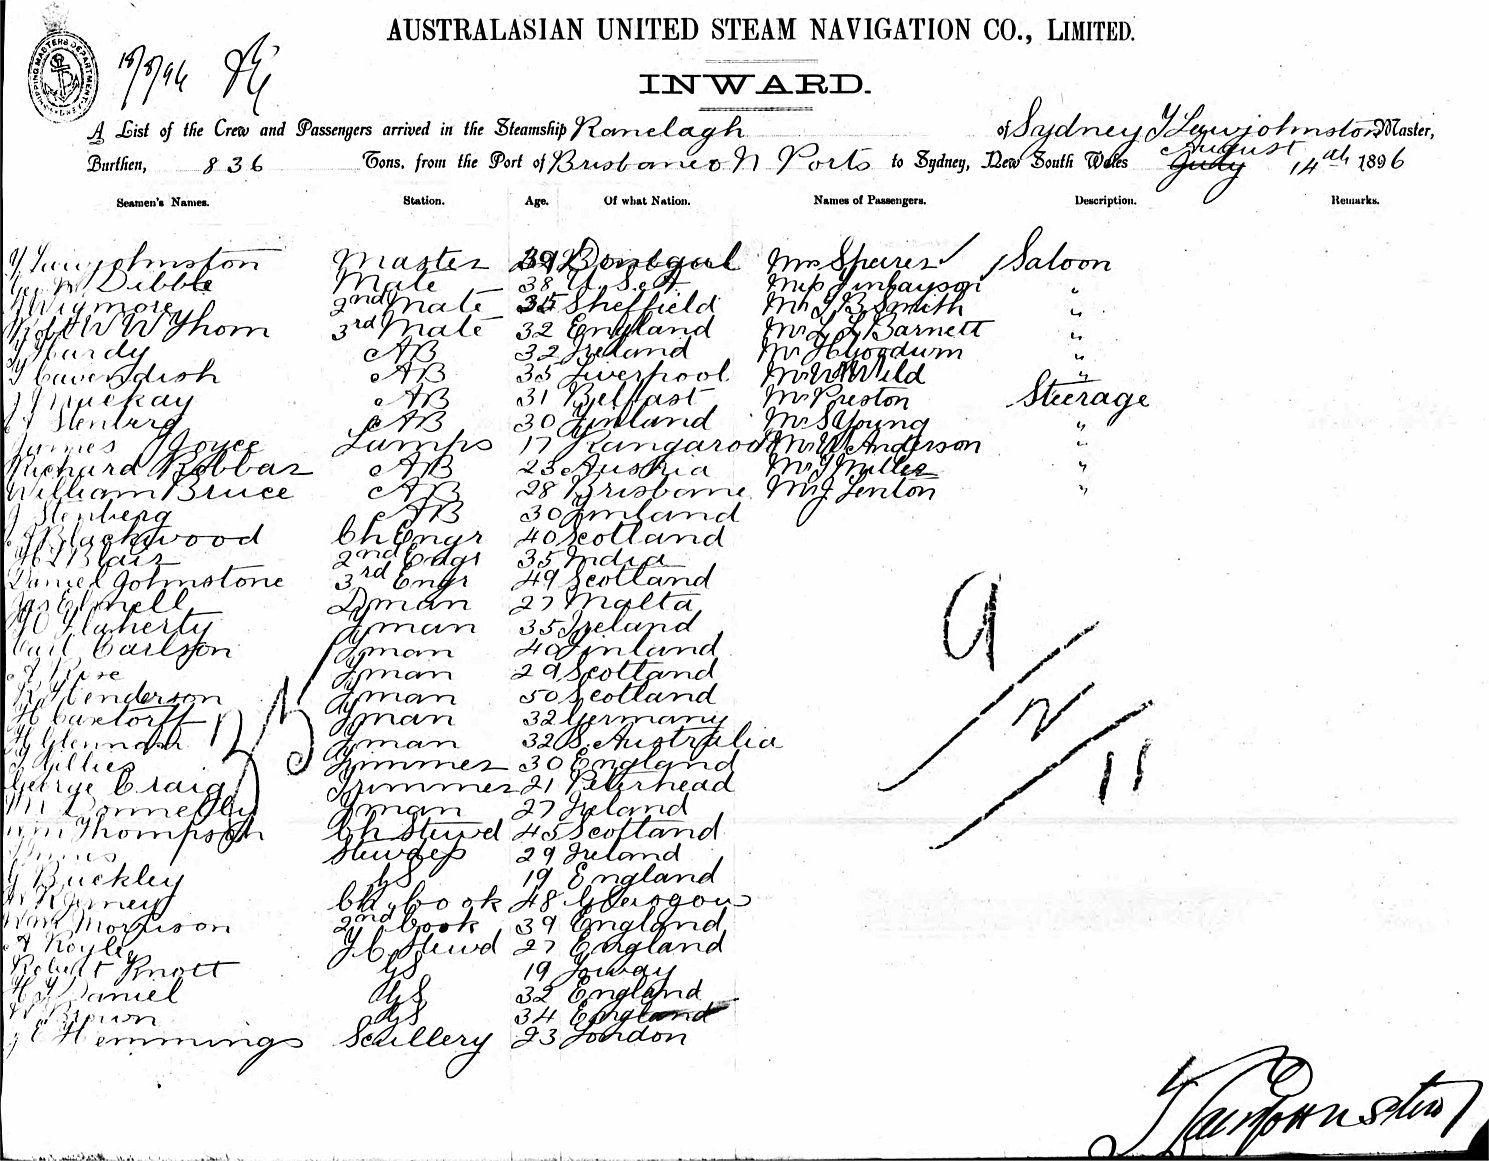 AUSTRALASIAN UNITED STEAM NAVIGATION CO., LIMITED.
18/8/96
INWARD.
A List of the Crew and Passengers arrived in the Steamship Ranelagh of Sydney Master,
Burthen, 836 Tons, from the Port of Brisbane & N Ports to Sydney, New South Wales July August 14th 1896
Seamen's Names. Station. Age. Of what Nation. Names of Passengers. Description. Remarks.
Master 39 Donegal Mrs Speirs Saloon
Dibble Mate 38 U. S. A Miss Finlayson "
Wigmore 2nd Mate 35 Sheffield Mr J B Smith "
W W Thom 3rd Mate 32 England Mr L L Barnett "
Hardy AB 32 Ireland Mr H Goodwin "
Cavendish AB 35 Liverpool Mr W Wild "
Mackay AB 31 Belfast Mr Preston Steerage
J Stenberg AB 30 Finland Mr S Young "
James Joyce Lamps 17 Kangaroo Mr W Anderson "
Richard AB 23 Austria Mr J Miller "
William Bruce AB 28 Brisbane Mr J Lenton "
J Stenberg AB 30 Finland
Blackwood Ch Engr 40 Scotland
Blair 2nd Engr 35 India
Daniel Johnstone 3rd Engr 49 Scotland
Jas 27 Malta
O Flaherty Fman 35 Ireland
Carl Carlson Fman 40 Finland
A Rose Fman 29 Scotland
R Henderson Fman 50 Scotland
H Fman 32 Germany
Fman 32 S. Australia
Gillies Trimmer 30 England
George Craig Trimmer 21 Peterhead
M Donnelly Fman 27 Ireland
Wm Thompson Ch Stewd 45 Scotland
Stewdess 29 Ireland
Buckley GS 19 England
Ch. Cook 48 Glasgow
Wm Morrison 2nd Cook 39 England
A Royle F C Stewd 27 England
Robert Knott GS 19
H J Daniel GS 32 England
W Brown GS 34 England
J E Hemmings Scullery 23 London
35
9/2/11